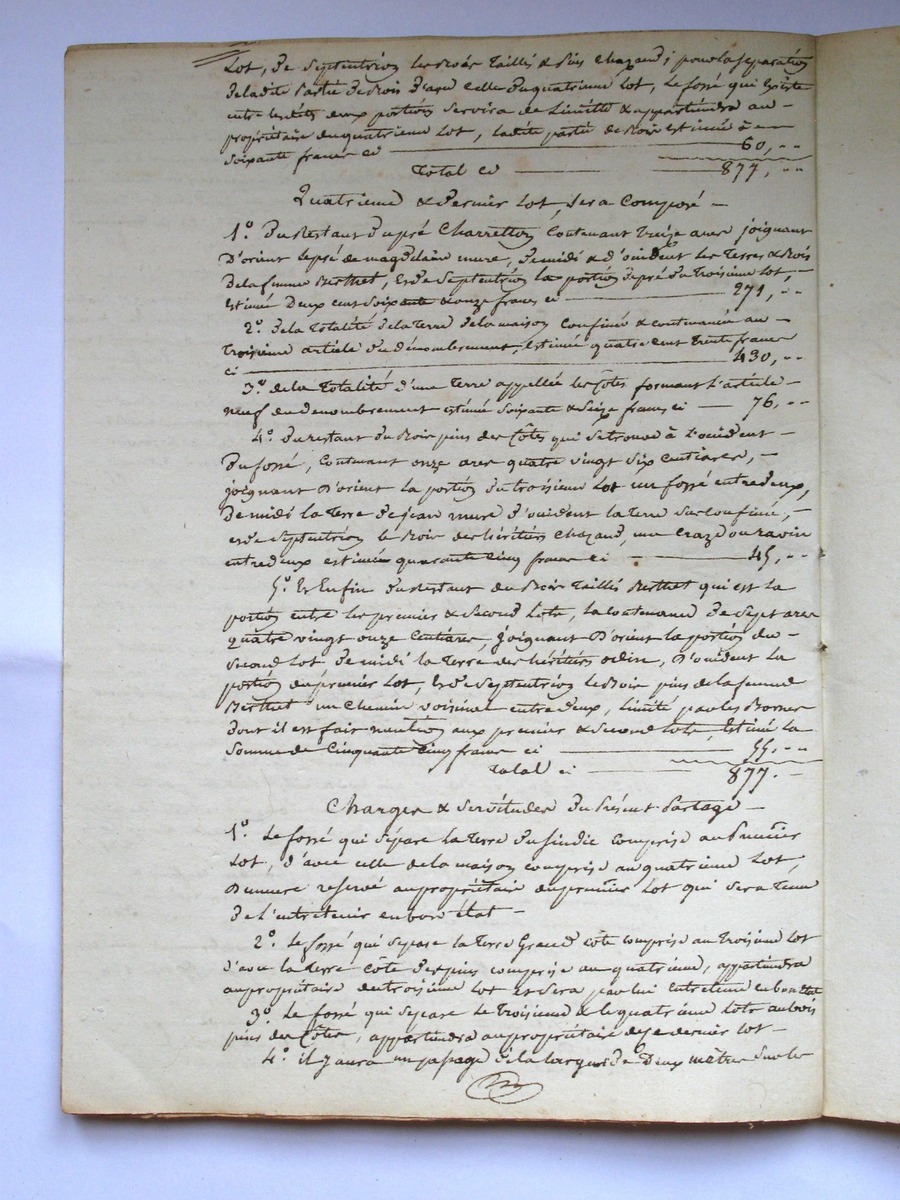 Lot, de Septentrion les Bois Taillis & Pins Chazaud; pour la separation
de ladite Partie de Bois d'avec celle du quatrieme Lot, le fossé qui existe
entre lesdites deux portions servira de limitte & appartiendra au
propriétaire du quatrieme Lot, ladite partie de Bois estimée à
soixante francs ci 60,--
Total ci 877,--
Quatrieme & Dernier Lot, sera Composé
1º. Du Restant du pré Charretton, Contenant Treize ares joignant
D'orient le pré de magdelaine mure, de midi & d'occident les Terres & Bois
De la femme Berthet, et de Septentrion la portion de pré du Troisieme Lot,
estimée Deux cent soixante & onze francs ci 271,--
2º. de la Totalité de la Terre de la maison Confinée & contenancée au
Troisieme article du dénombrement, estimée quatre cent Trente francs
ci 430,--
3º. de la Totalité d'une Terre appellée les Côtes formant l'article
neuf du denombrement estimée Soixante & Seize francs ci 76,--
4º. Du restant du Bois pins des Côtes qui se trouve à l'occident
Du fossé, Contenant onze ares quatre vingt six Centiares,
joignant D'orient la portion du troisieme Lot un fossé entre deux,
De midi la Terre de jean mure d'occident la Terre sus Confinée,
et de Septentrion le Bois des héritiers Chazaud, une Craz ou ravin
entre deux estimée quarante Cinq francs ci 45,--
5º. Et Enfin du Restant du Bois Taillis Berthet qui est la
portion entre les premier & Second Lots, la Contenance de Sept ares
quatre vingt onze Centiares, joignant D'orient la portion du
second Lot de midi la Terre des héritiers odine, D'occident la
portion du premier Lot, et de Septentrion le Bois pins de la femme
Berthet un Chemin voisinal entre deux, Limitté par les Bornes
Dont il est fait mention aux premier & Second Lots, Estimé la
Somme de Cinquante Cinq francs ci 55,--
Total ci 877.-
Charges & Servitudes du Présent Partage
1º. Le fossé qui sépare la Terre du compris au Premier
Lot, d'avec celle de la maison comprise au quatrieme Lot,
Demeure reservé au propriétaire du premier Lot qui sera Tenu
De l'entretenir en bon état
2º. Le fossé qui separe la Terre Grand Côte comprise au Troisieme Lot
d'avec la Terre Côte des pins comprise au quatrieme, appartiendra
au propriétaire du troisieme Lot et sera par lui entretenu en bon Etat
3º. Le fossé qui separe le Troisieme & le quatrieme Lots au bois
pins des Côtes, appartiendra au propriétaire de ce dernier Lot
4º. il y aura un passage de la largeur de Deux mètres sur les